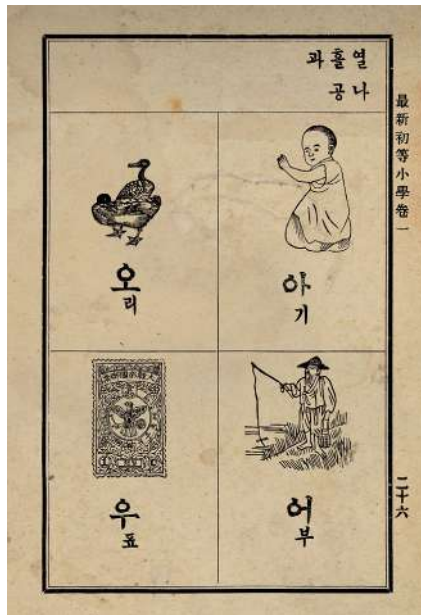 最新初等小學卷一
二十六
열나
흘공
과
아기
어부
오리
우표